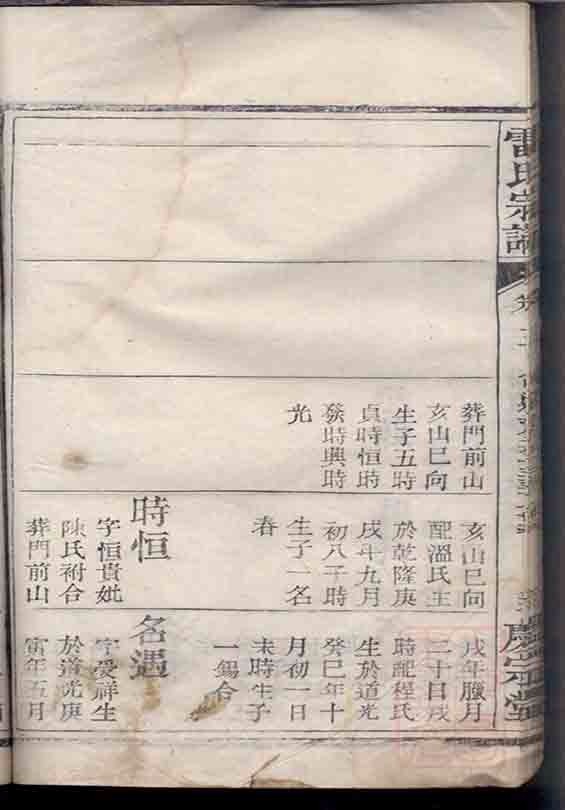 雷氏宗譜
卷二
葬門前山
亥山巳向
生子五時
貞時恒時
發時興時
光
亥山巳向
配溫氏生
於乾隆庚
戌年九月
初八子時
生子一名
春
時恒
字恒貴妣
陳氏祔合
葬門前山
戌年臘月
二十日戌
時配程氏
生於道光
癸巳年十
月初一日
未時生子
一錫合
名遇
字受祥生
於道光庚
寅年五月